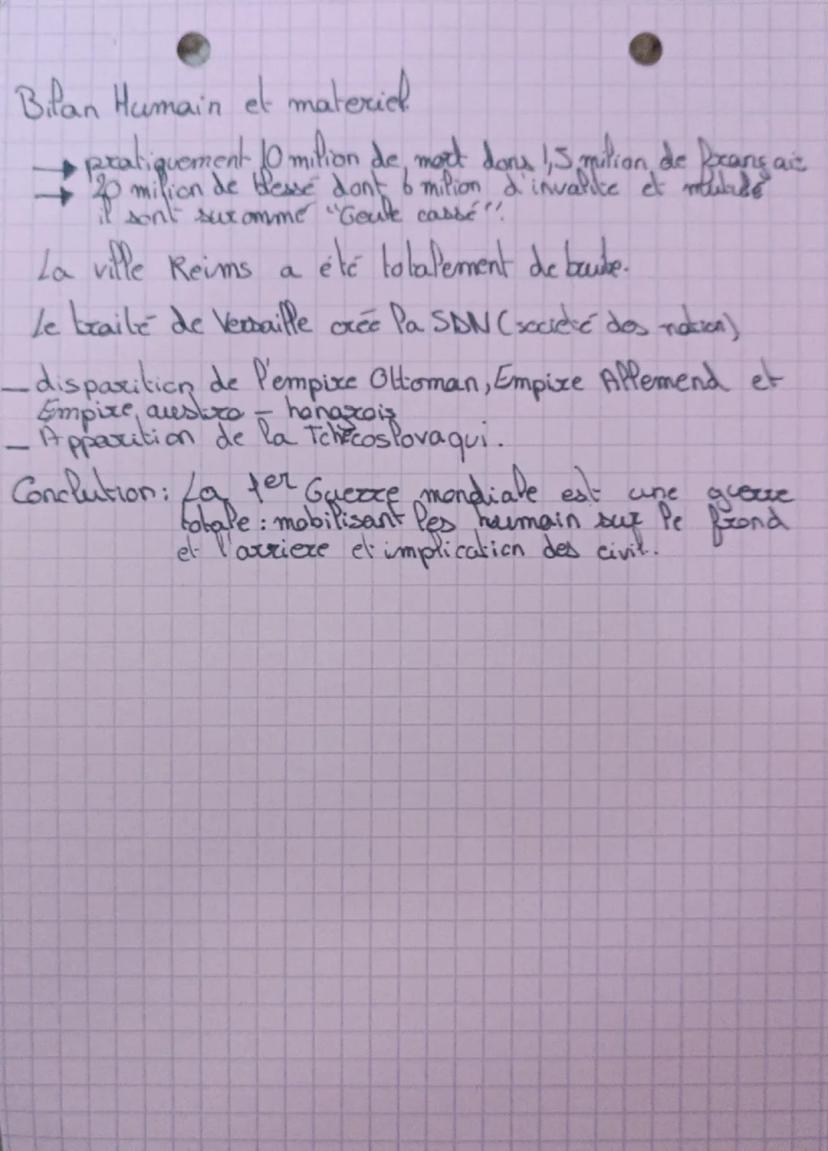 Bilan Humain et materiel
→ pratiquement 10 milion de mort dons 1,5 milion de Français
→ 20 milion de blessé dont 6 milion d'invalite et mutulé
il sont surommé "Geule cassé".
La ville Reims a été totalement de truite.
Le traité de Versaille crée la SDN (société des nation)
- disparition de l'empire Ottoman, Empire Allemend et
Empire austro - hongrois
- Apparition de la Tchécoslovaqui.
Conclution: La 1er Guerre mondiale est une guerre
totale : mobilisant les humain sur le frond
et l'arriere et implication des civil.